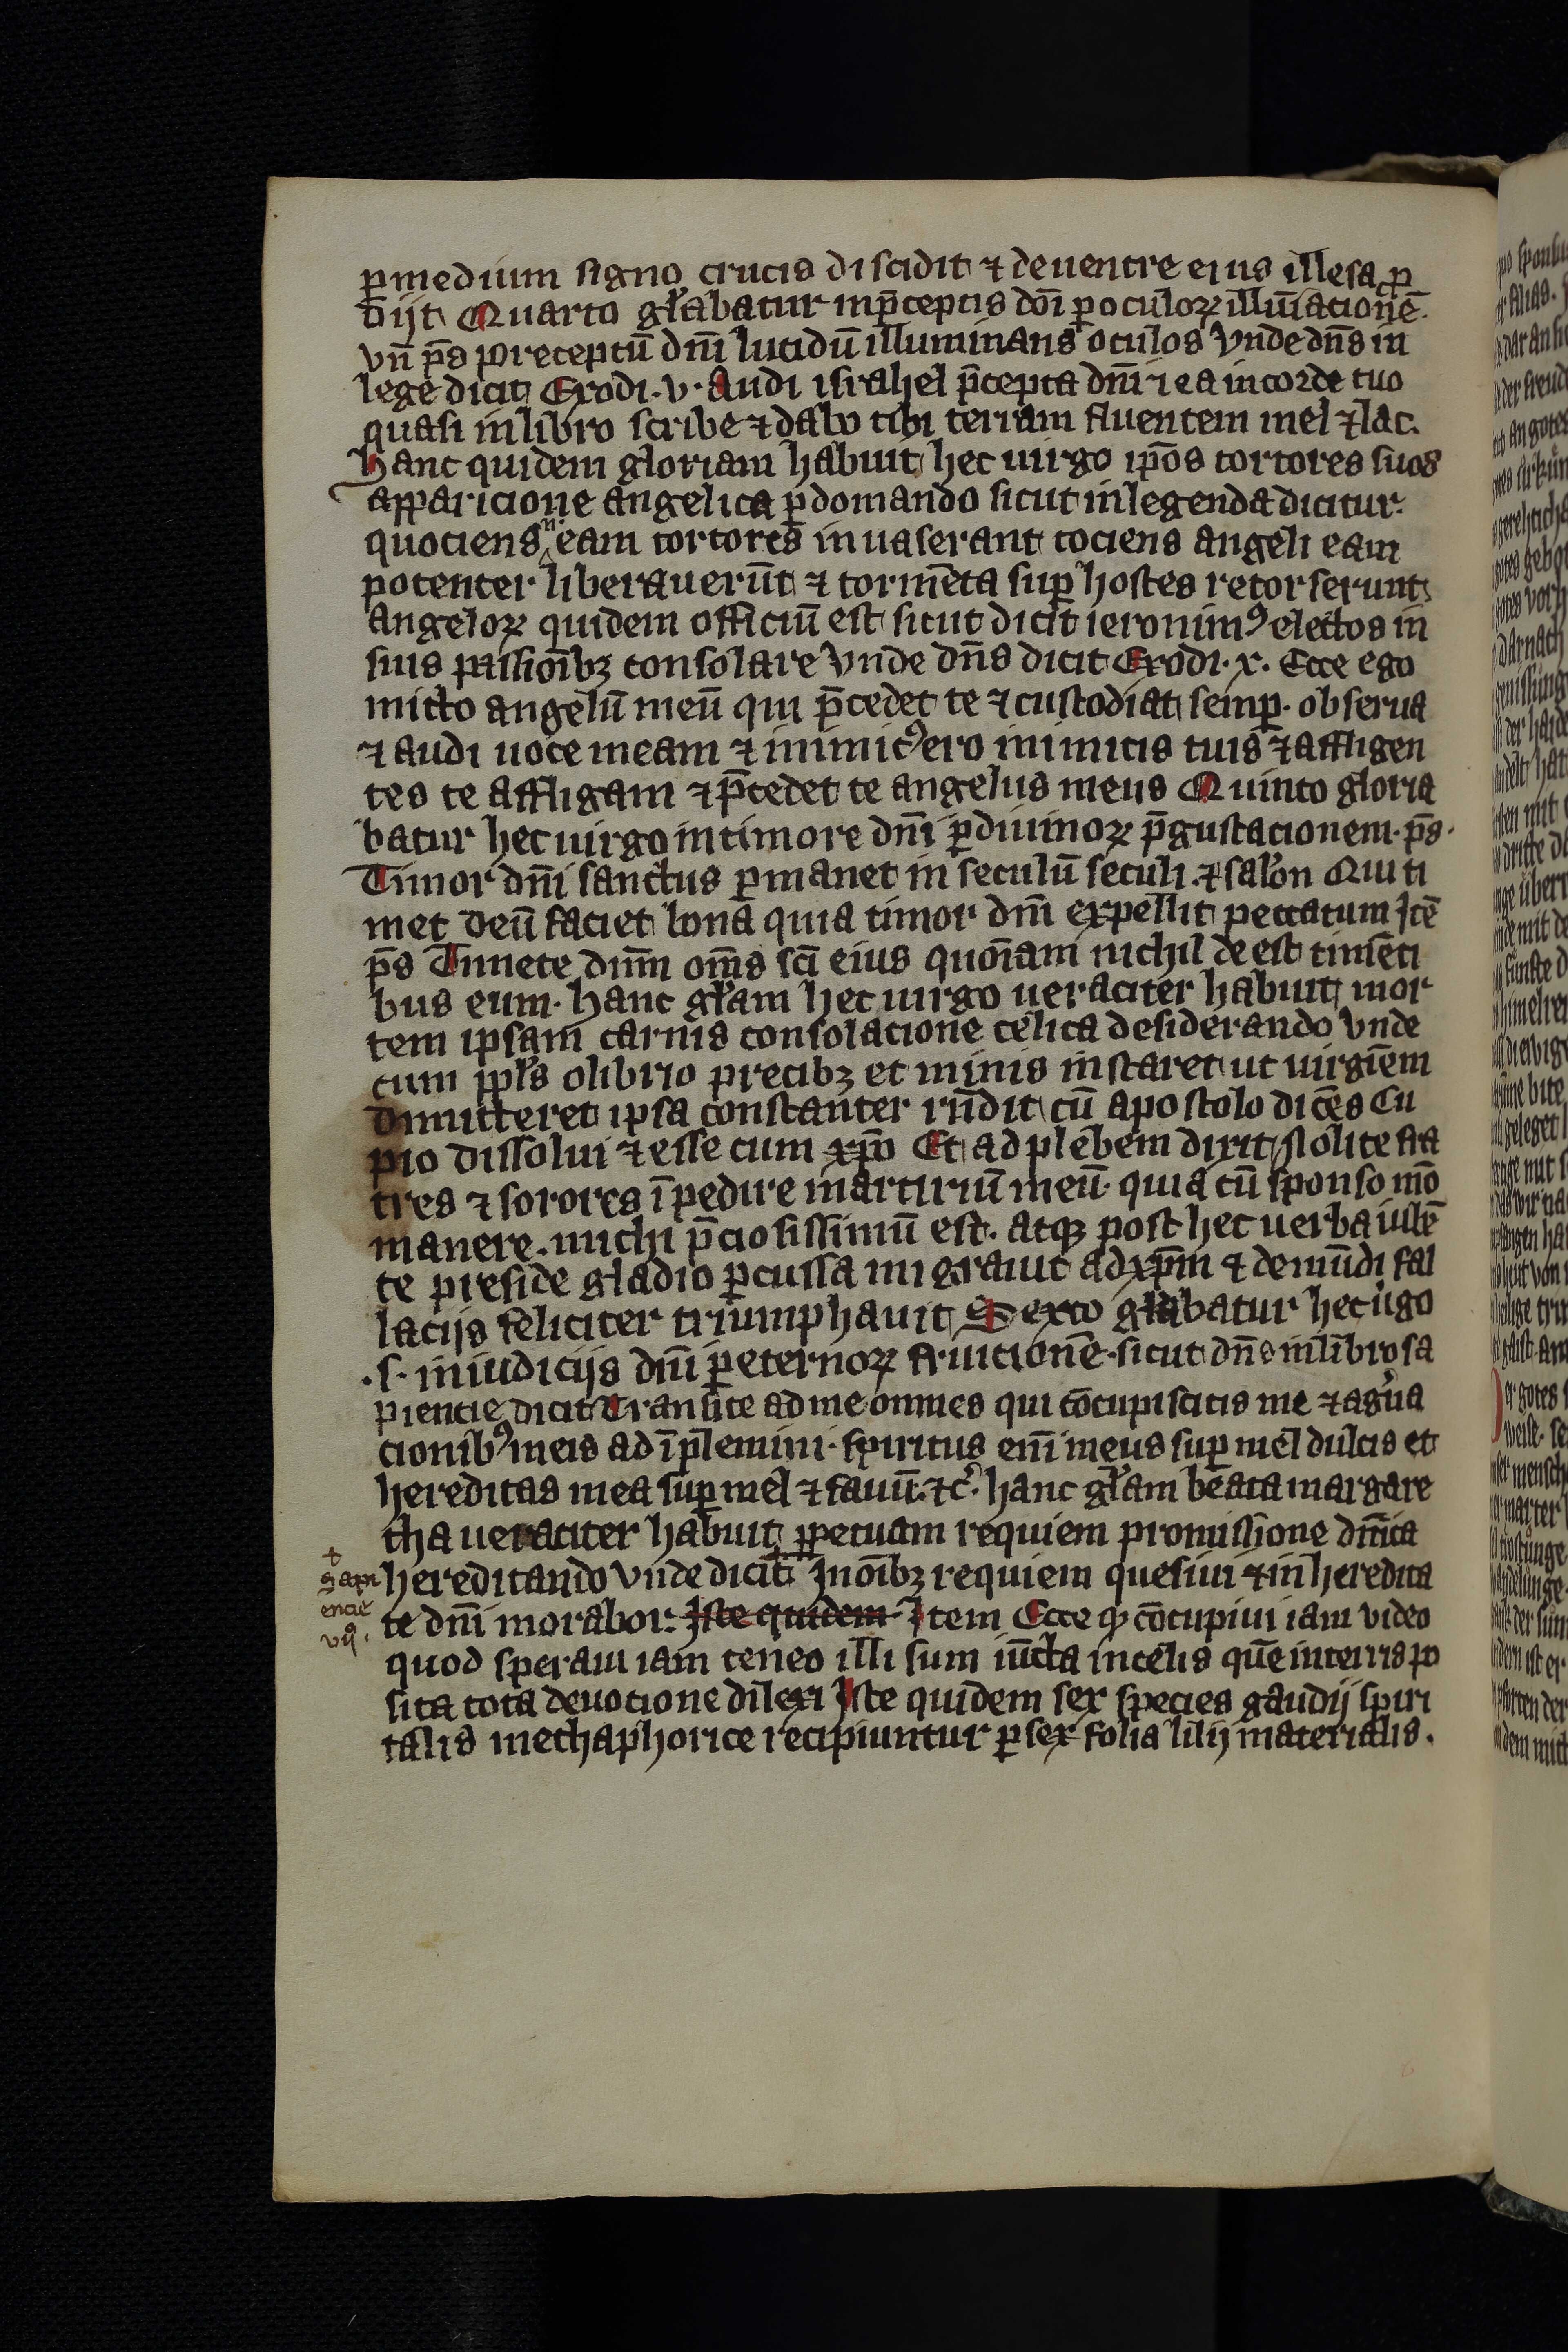 ꝑmedium signo crucis discidit ⁊ deuentre eius illesa ꝓ
dijt Quarto gl̓abatur inp̄ceptis dn̄i ꝑ oculoꝝ illuīacionē.
vn̄ p̄s Preceptū dn̄i lucidū illuminans oculos Vnde dn̄s in
lege dicit Exodi. v. Audi israhel p̄cepta dn̄i ⁊ ea incorde tuo
quasi inlibro scribe ⁊ dabo tibi terram fluentem mel ⁊ lac.
Hanc quidem gloriam habuit hec uirgo ip̄os tortores suos
apparicione angelica ꝑdomando sicut inlegenda dicitur.
quociens n̄. eam tortores inuaserant tociens angeli eam
potenter liberauerūt ⁊ tormēta suꝑ hostes retorserunt
Angeloꝝ quidem officiū est sicut dicit ieronimꝰ electos in
suis passioībꝫ consolare Vnde dn̄s dicit Exodi. x. Ecce ego
mitto angelū meū qui p̄cedet te ⁊ custodiat semꝑ. obserua
⁊ audi uoce meam ⁊ inimicꝰ ero inimicis tuis ⁊ affligen
tes te affligam ⁊ p̄cedet te angelus meus Quinto gloria
batur hec uirgo intimore dn̄i ꝑ diuinoꝝ p̄gustacionem. p̄s.
Timor dn̄i sanctus ꝑmanet in seculū seculi. ⁊ salon̄ Qui ti
met deū faciet bona quia timor dn̄i expellit peccatum Itē
p̄s Timete dn̄m om̄s sc̄i eius quoīam nichil deest timēti
bus eum. Hanc gl̓am hec uirgo ueraciter habuit mor
tem ipsam carnis consolacione celica desiderando Vnde
cum ipl̓s olibrio precibꝫ et minis instaret ut uirgīem
dimitteret ipsa constanter rn̄dit cū apostolo dicēs Cu
pio dissolui ⁊ esse cum xp̄o Et ad plebem dixit Nolite fra
tres ⁊ sorores īpedire martiriū meū. quia cū sponso mō
manere. michi p̄ciosissimū est. atqꝫ post hec uerba iubē
te preside gladio ꝑcussa migrauit adxp̄m ⁊ demūdi fal
lacijs feliciter triumphauit Sexto gl̓abatur hec uͥgo
.s. iniudicijs dn̄i ꝑ eternoꝝ fruicionē. sicut dn̄s inlibro sa
piencie dicit Transite ad me omnes qui cōcupiscitis me ⁊ agn̓a
cionibꝰ meis ad īplemini. spiritus enī meus suꝑ mel dulcis et
hereditas mea suꝑ mel ⁊ fauū. ⁊c̓. Hanc gl̓am beata margare
tha ueraciter habuit ꝑpetuam requiem promissione dn̄ica
hereditando Vnde dicit Inoībꝫ requiem quesiui ⁊ in heredita
te dn̄i morabor. Iste quidem Item Ecce qꝫ cōcupiui iam video
quod speraui iam teneo illi sum iūcta incelis quē interris po
sita tota deuocione dilexi Iste quidem sex species gaudij spiri
talis methaphorice recipiuntur ꝑ sex folia lilij materialis.
+
sapi
encie
vijͦ.